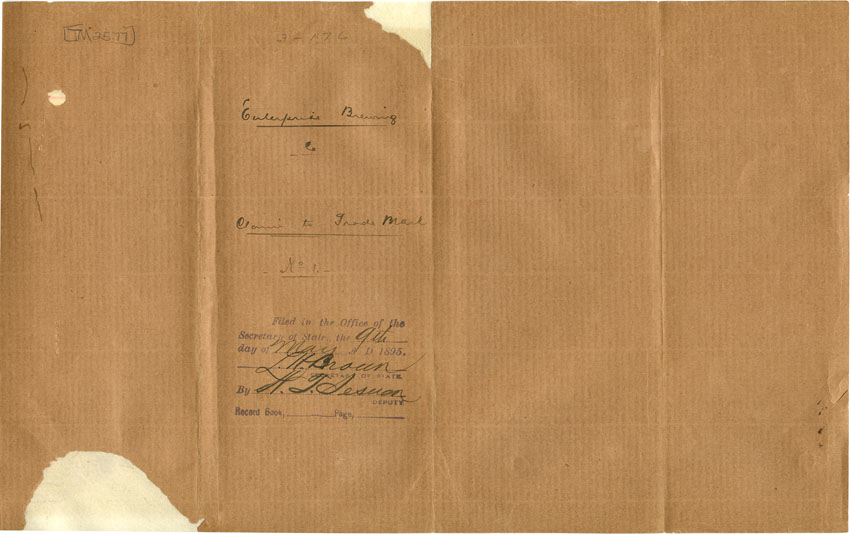 [TM2577]
3-176
Enterprise Brewing
Co
Claim to Trade Mark
No 1
Filed in the Office of the
Secretary of State, the 9th
day of May A D 1895.
L. H. Brown
SECRETARY OF STATE
By
DEPUTY
Record Book, Page,